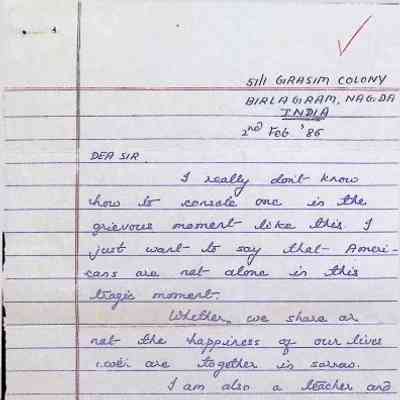 51/1 GRASIM COLONY
BIRLAGRAM, NAGDA
INDIA
2nd Feb '86
DEAR SIR,
I really don't know
how to console one in the
grievous moment like this. I
just want to say that Ameri-
cans are not alone in this
tragic moment.
Whether, we share or
not the happiness of our lives
we are together in sorrow.
I am also a teacher and